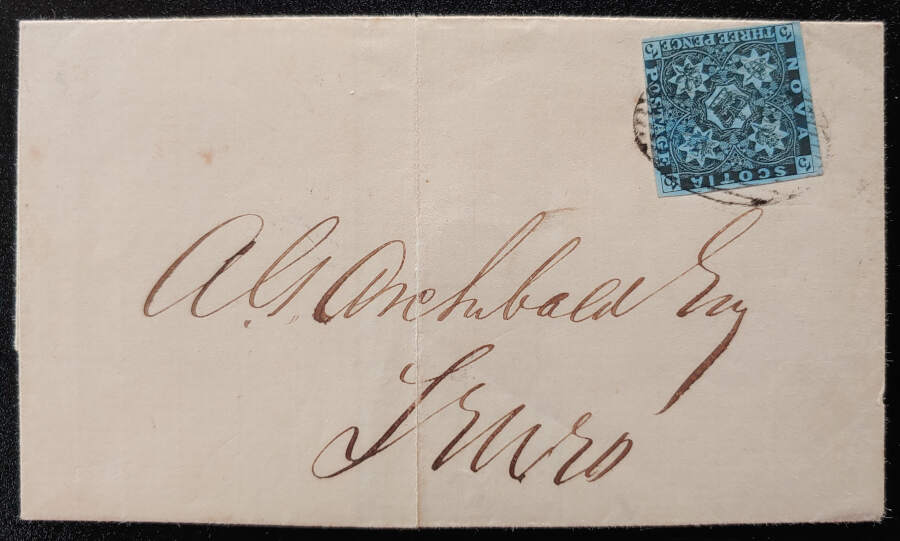 THREE PENCE
NOVA
SCOTIA
POSTAGE
3
3
3
3
A. G. Archibald Esq
Truro